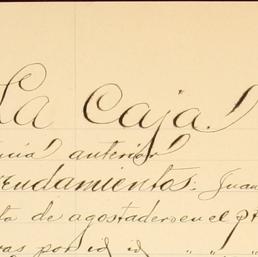 La Caja.
ncia anterior
rendamientos. Juan
ta de agostadero en el p
vas por id id " "